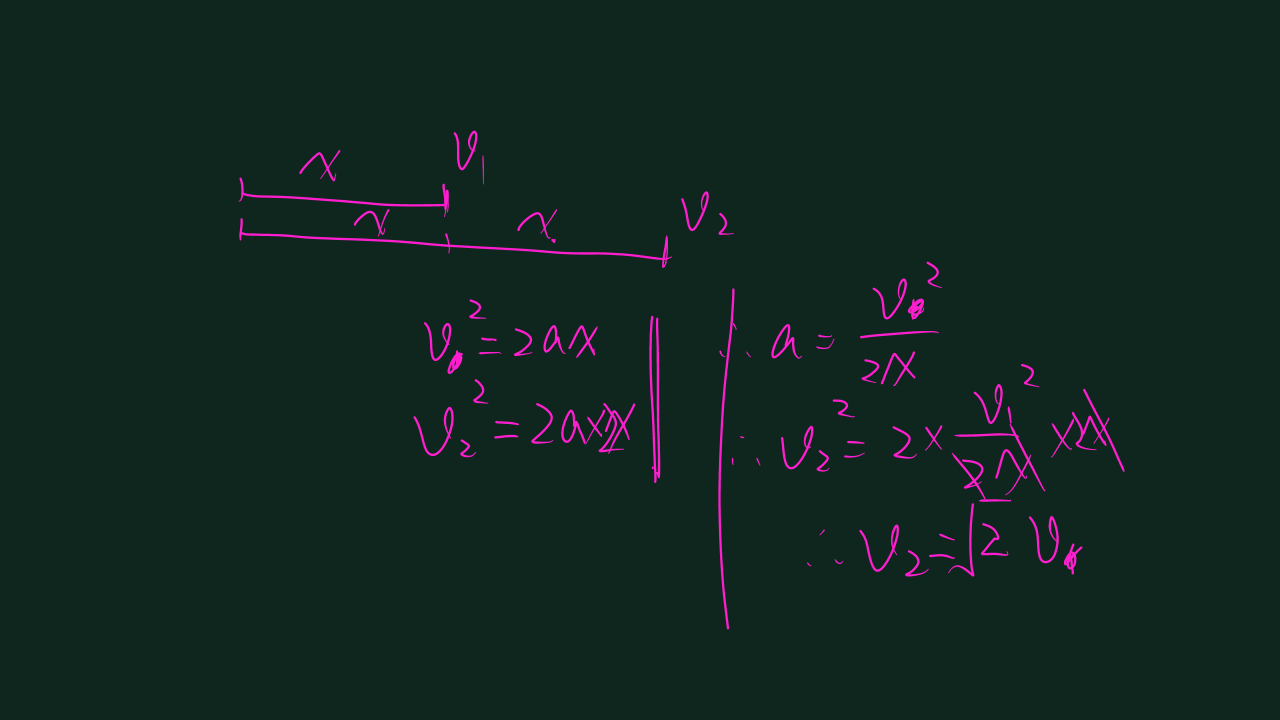 x v₁
x x v₂
v₁² = 2ax
v₂² = 2a×2x
∴ a = v₁²/2x
∴ v₂² = 2 × v₁²/2x × 2x
∴ v₂ = √2 v₁